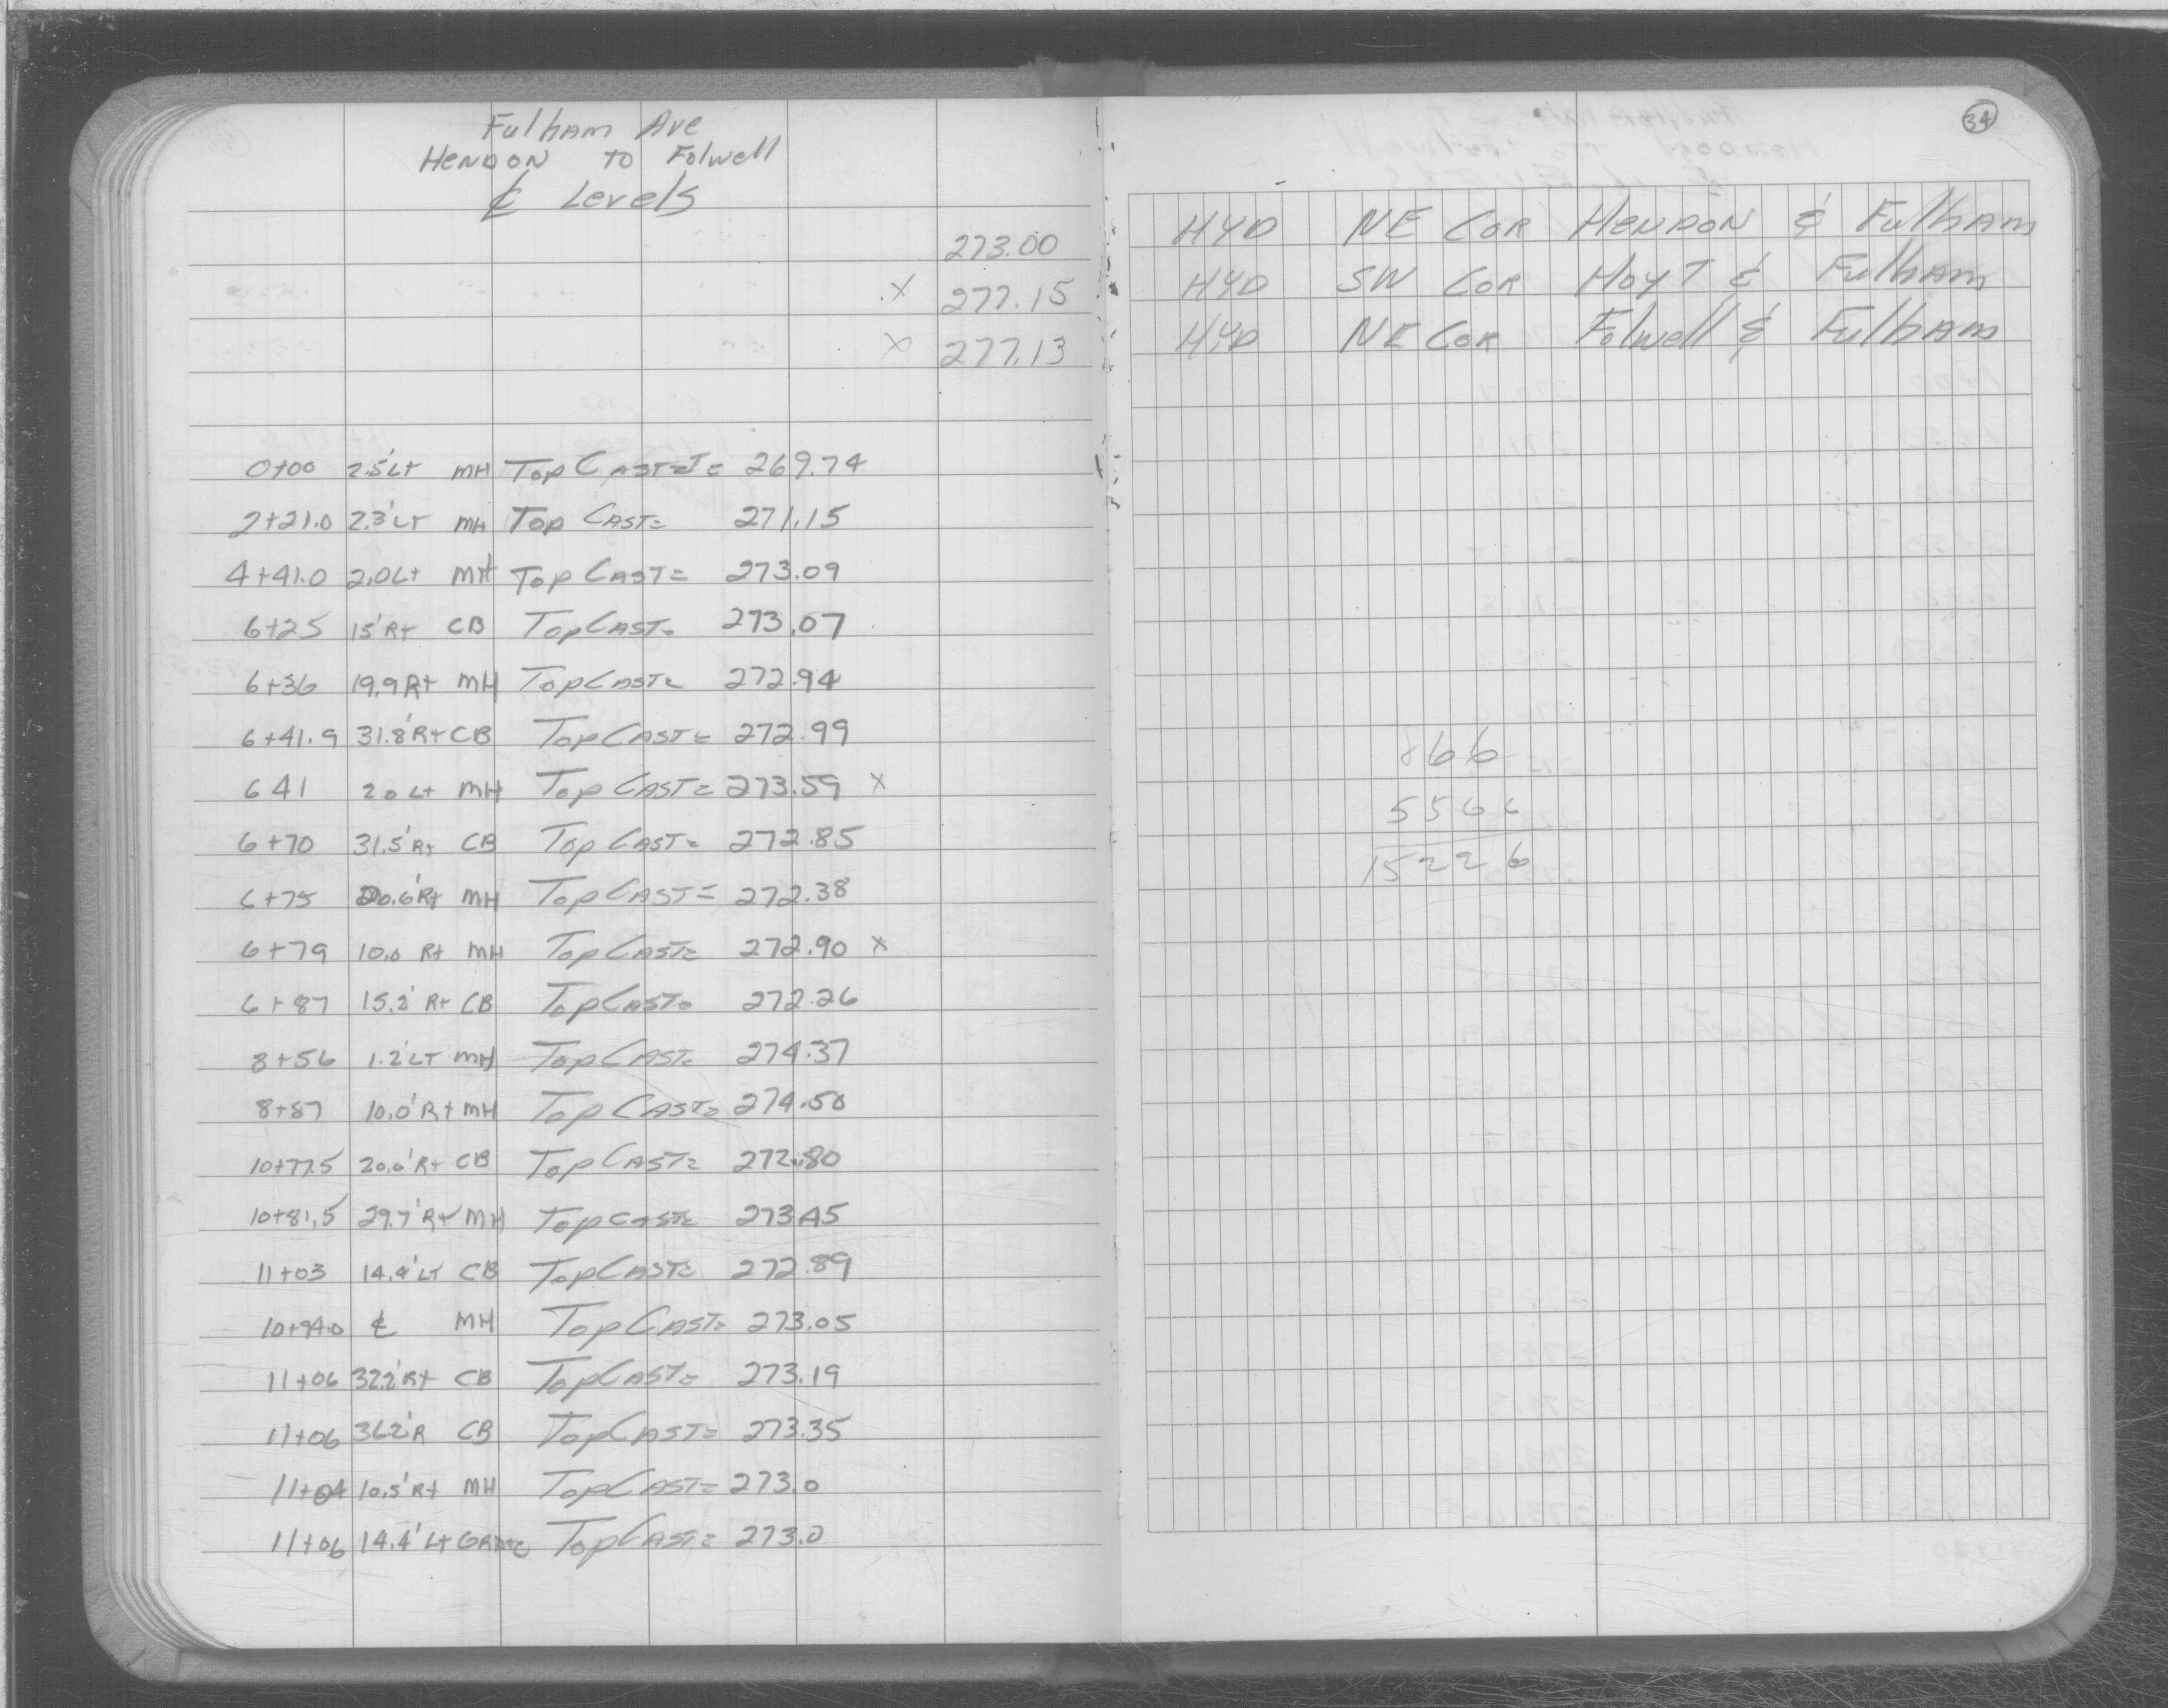 Fulham Ave
HENDON TO Folwell
℄ Levels
34
273.00 HYD NE COR HENDON & Fulham
X 277.15 HYD SW COR HOYT & Fulham
X 277.13 HYD NE COR Folwell & Fulham
0+00 2.5'Lt MH Top CAST= 269.74
2+21.0 2.3'LT MH Top CAST= 271.15
4+41.0 2.0Lt MH Top CAST= 273.09
6+25 15'Rt CB Top CAST= 273.07
6+36 19.9Rt MH Top CAST= 272.94
6+41.9 31.8'Rt CB Top CAST= 272.99
6 41 2.0 Lt MH Top CAST= 273.59 X
6+70 31.5'Rt CB Top CAST= 272.85
6+75 20.6'Rt MH Top CAST= 272.38
6+79 10.0 Rt MH Top CAST= 272.90 X
6+87 15.2' Rt CB Top CAST= 272.26
8+56 1.2'LT MH Top CAST= 274.37
8+87 10.0'Rt MH Top CAST= 274.50
10+77.5 20.0'Rt CB Top CAST= 272.80
10+81.5 29.7'Rt MH Top CAST= 273.45
11+03 14.4'LT CB Top CAST= 272.89
10+94.0 ℄ MH Top CAST= 273.05
11+06 32.2'Rt CB Top CAST= 273.19
11+06 36.2'R CB Top CAST= 273.35
11+04 10.5'Rt MH Top CAST= 273.0
11+06 14.4'Lt GRATE Top CAST= 273.0
866
5566
15226